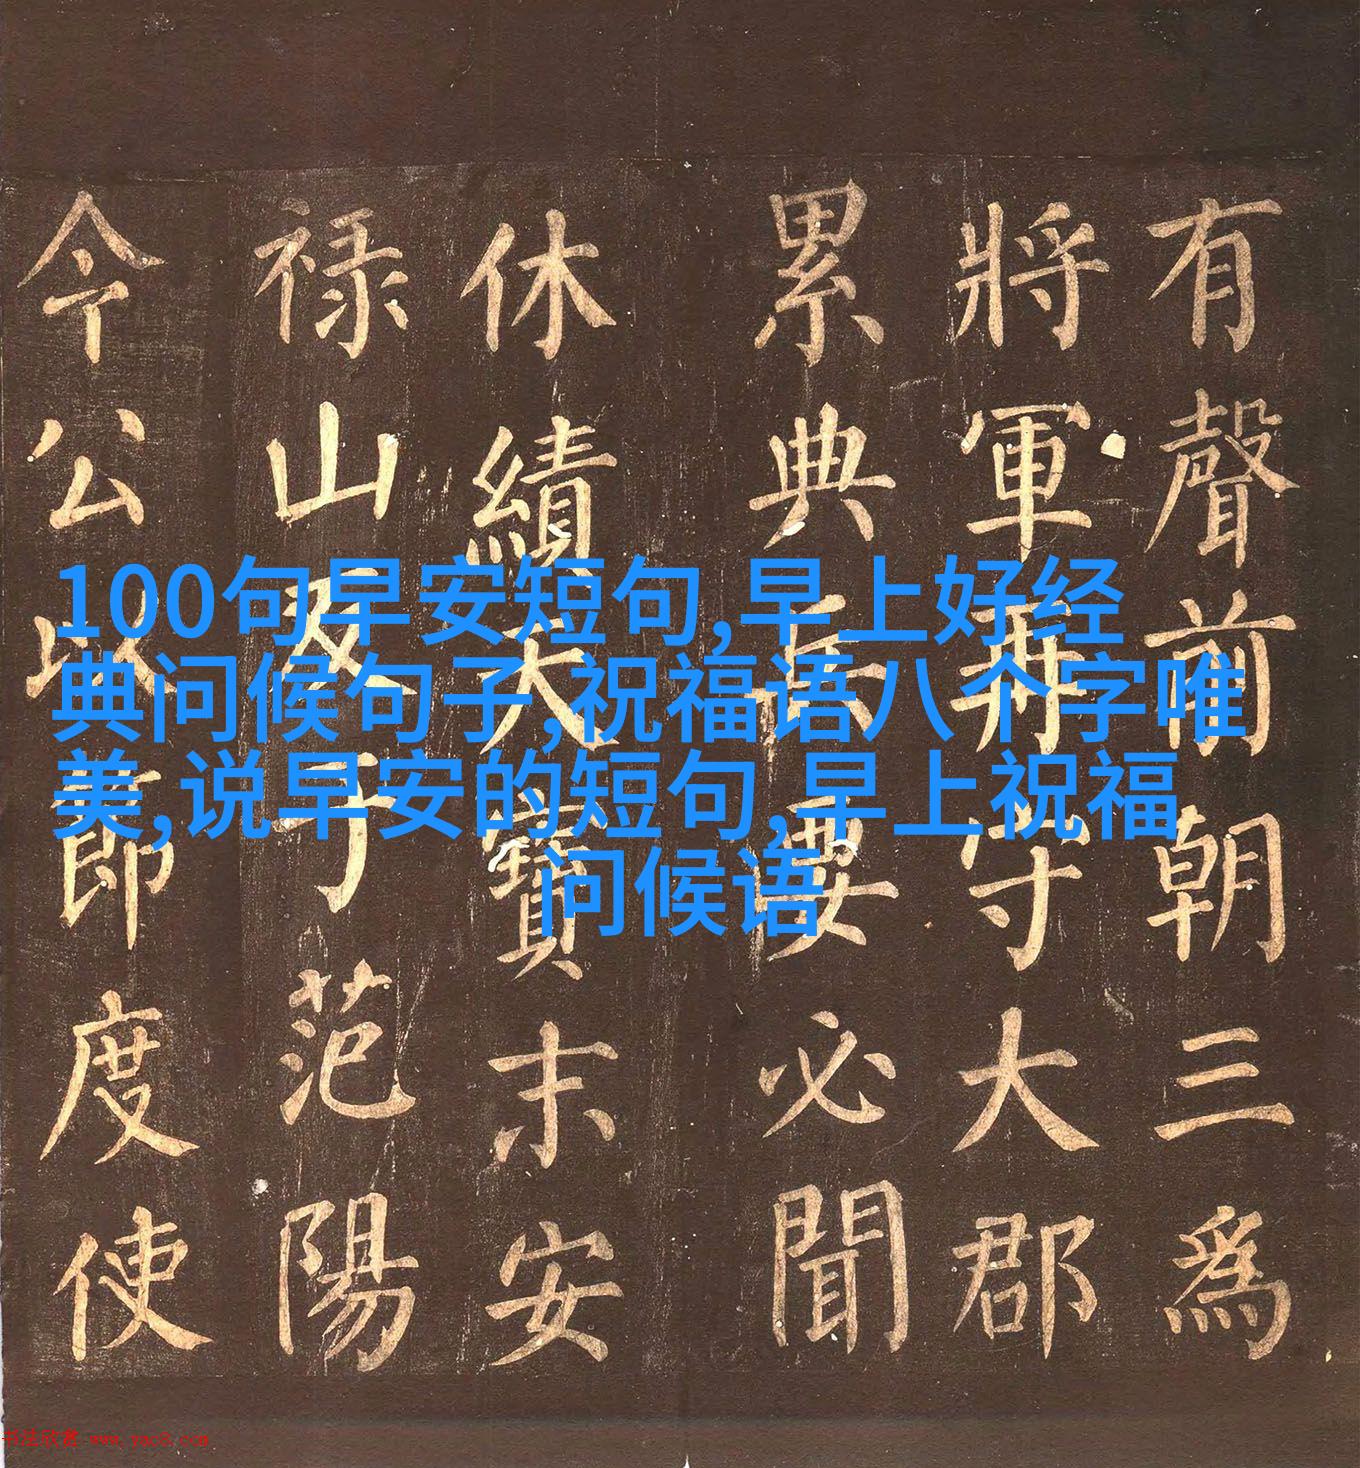 100句早安短句,早上好经
典问候句子,祝福语八个字唯
美,说早安的短句,早上祝福
问候语
有聲前朝三為
將軍再守大郡
累典兵要必聞
休績天寶末安
禄山反于范陽
今公以節度使
书法欣赏 www.yac8.com